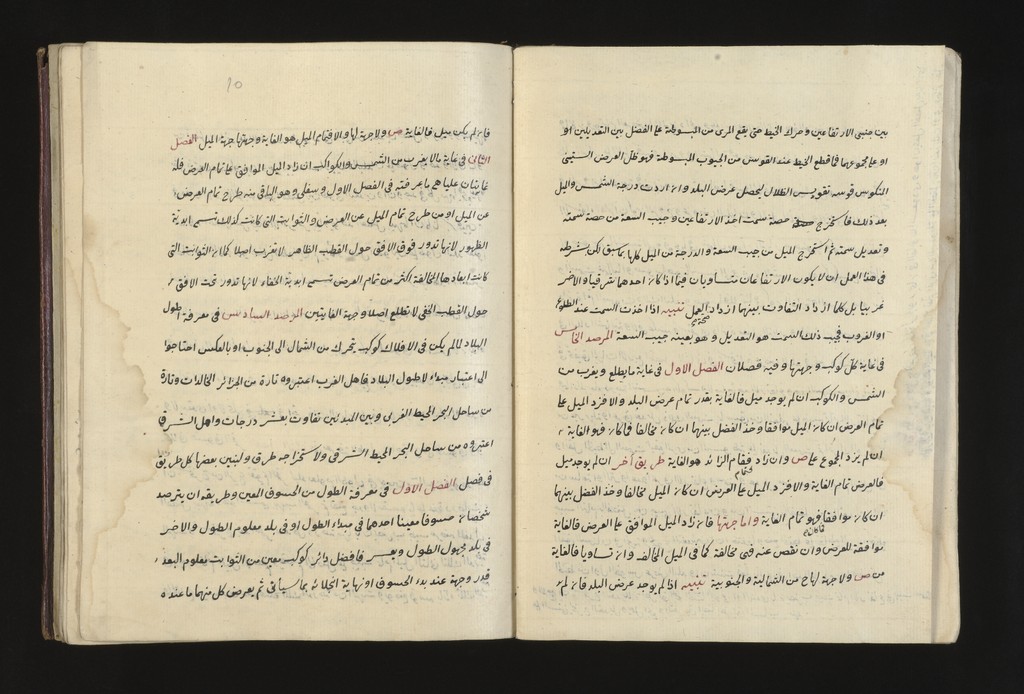 بين جنبي الارتفاعين وحرك الخيط حتى يقع المرى من المبسوطة على الفضل بين التعديلين او
او على مجموعهما فما قطع الخيط عند القوس من الجيوب المبسوطة فهو ظل العرض الستيني
المنكوس قوسه بقويس الظلال ليحصل عرض البلد وان اردت درجة الشمس والميل
بعد ذلك فاستخرج حصة سمت احد الارتفاعين وجيب السعة من حصة سمته
وتعديل سمته ثم استخرج الميل من جيب السعة والدرجة من الميل كلها بما سبق لكن بشرطه
في هذا العمل ان لا يكون الارتفاعان متساويان فيما اذا كان احدهما شرقيا والاخر
غربيا بل كلما ازداد التفاوت بينهما ازداد العمل صحة تنبيه اذا اخذت السمت عند الطلوع
او الغروب فجيب ذلك السمت هو التعديل وهو بعينه جيب السعة المرصد الخامس
في غاية كل كوكب وجهتها وفيه فصلان الفصل الاول في غاية ما يطلع ويغرب من
الشمس والكوكب ان لم يوجد ميل فالغاية بقدر تمام عرض البلد والا فزد الميل على
تمام العرض ان كان الميل موافقا وخذ الفضل بينهما ان كان مخالفا فما كان فهو الغاية
ان لم يزد المجموع على ص وان زاد فتمام الزائد هو الغاية طريق اخر ان لم يوجد ميل
فالعرض تمام الغاية والا فزد الميل على العرض ان كان الميل مخالفا وخذ الفضل بينهما
ان كان موافقا فما كان فهو تمام الغاية واما جهتها فان زاد الميل الموافق على العرض فالغاية
موافقة للعرض وان نقص عنه فهي مخالفة كما في الميل المخالف وان تساويا فالغاية
من ص ولا جهة لها ح من الشمالية والجنوبية تنبيه اذا لم يوجد عرض البلد فان لم
١٥
فان لم يكن ميل فالغاية ص ولا جهة لها والا فتمام الميل هو الغاية وجهتها جهة الميل الفصل
الثاني في غاية ما لا يغرب من الشمس والكواكب ان زاد الميل الموافق على تمام العرض فله
غايتان عليا هي ما عرفته في الفصل الاول وسفلى وهو الباقي من طرح تمام العرض
عن الميل او من طرح تمام الميل عن العرض والثوابت التي كانت كذلك تسمى ابدية
الظهور لانها تدور فوق الافق حول القطب الظاهر لا تغرب اصلا كما ان الثوابت التي
كانت ابعادها المخالفة اكثر من تمام العرض تسمى ابدية الخفاء لانها تدور تحت الافق
حول القطب الخفي لا تطلع اصلا وجهة الغايتين المرصد السادس في معرفة اطول
البلاد لما لم يكن في الافلاك كوكب يتحرك من الشمال الى الجنوب او بالعكس احتاجوا
الى اعتبار مبداء لاطول البلاد فاهل الغرب اعتبروه تارة من الجزائر الخالدات وتارة
من ساحل البحر المحيط الغربي وبين المبدئين تفاوت بعشر درجات واهل الشرق
اعتبروه من ساحل البحر المحيط الشرقي ولاستخراجه طرق ولنبين بعضها كل طريق
في فصل الفصل الاول في معرفة الطول من الخسوف المعين وطريقه ان يترصد
شخصان خسوفا معينا احدهما في مبداء الطول او في بلد معلوم الطول والاخر
في بلد مجهول الطول فافضل دائر كوكب معين من الثوابت معلوم البعد
قدر وجهة عند بدء الخسوف او نهاية انجلائه بما سيأتي ثم يعرض كل منهما ما عنده